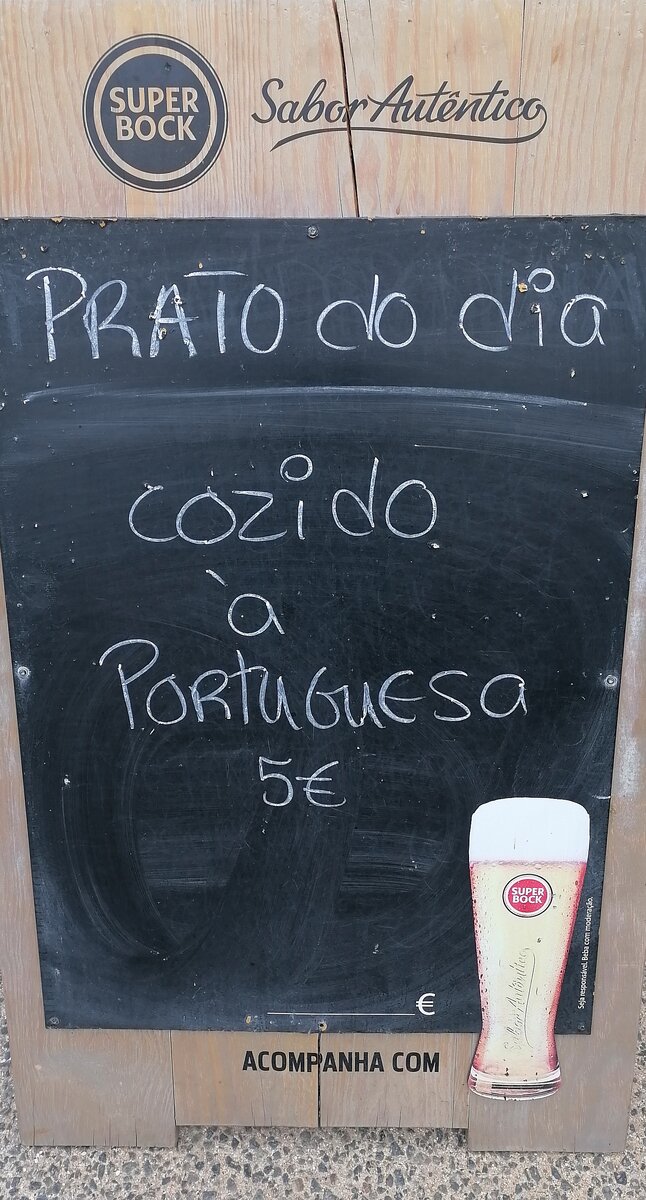 SUPER
BOCK
Sabor Autêntico
PRATO do dia
cozido
à
PORTUGUESA
5€
SUPER
BOCK
Sabor Autêntico
Seja responsável. Beba com moderação.
€
ACOMPANHA COM